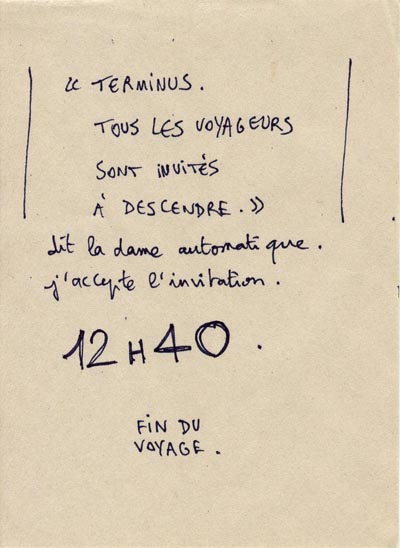 « TERMINUS.
TOUS LES VOYAGEURS
SONT INVITÉS
À DESCENDRE. »
dit la dame automatique.
j'accepte l'invitation.
12H40.
FIN DU
VOYAGE.